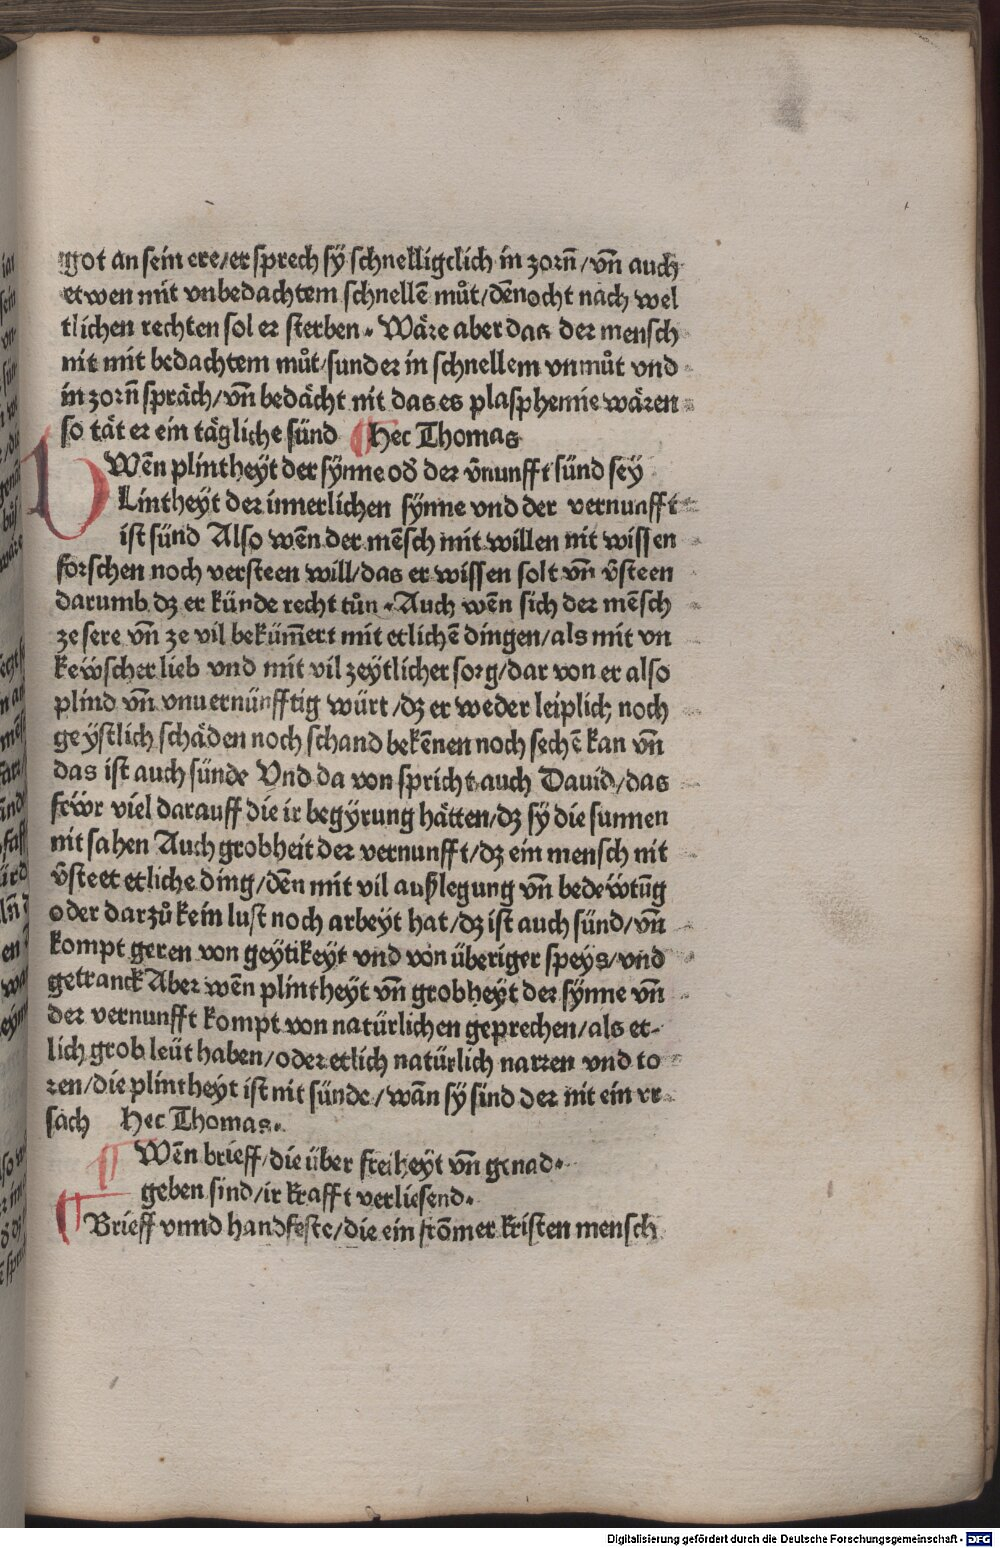 got an sein ere/er sprech sÿ schnelligclich in zorñ/vñ auch
etwen mit vnbedachtem schnellē můt/dēnocht nach wel
tlichen rechten sol er sterben. Wäre aber das der mensch
nit mit bedachtem můt/sunder in schnellem vnmůt vnd
in zorñ spräch/vñ bedächt nit das es plasphemie wären
so tät er ein tägliche sünd ¶ Hec Thomas
Wēn plintheÿt der sÿnne od̄ der v̄nunfft sünd seÿ
PLintheÿt der innerlichen sÿnne vnd der vernunfft
ist sünd Also wēn der mēsch mit willen nit wissen
forschen noch versteen will/das er wissen solt vñ v̄steen
darumb dz er künde recht tůn. Auch wēn sich der mēsch
ze sere vñ ze vil bekūmert mit etlichē dingen/als mit vn
kewscher lieb vnd mit vil zeÿtlicher sorg/dar von er also
plind vñ vnuernünfftig würt/dz er weder leiplich noch
geÿstlich schäden noch schand bekēnen noch sechē kan vñ
das ist auch sünde Vnd da von spricht auch Dauid/das
fewr viel darauff die ir begÿrung hätten/dz sÿ die sunnen
nit sahen Auch grobheit der vernunfft/dz ein mensch nit
v̄steet etliche ding/dēn mit vil außlegung vñ bedewtūg
oder darzů kein lust noch arbeÿt hat/dz ist auch sünd/vñ
kompt geren von geÿtikeÿt vnd von überiger speÿs/vnd
getranck Aber wēn plintheÿt vñ grobheÿt der sÿnne vñ
der vernunfft kompt von natürlichen geprechen/als et-
lich grob leüt haben/oder etlich natürlich narren vnd to
ren/die plintheÿt ist nit sünde/wān sÿ sind der nit ein vr
sach Hec Thomas.
¶ Wēn brieff/die über freiheÿt vñ genad.
geben sind/ir krafft verliesend.
¶ Brieff vnnd handfeste/die ein frōmer kristen mensch
Digitalisierung gefördert durch die Deutsche Forschungsgemeinschaft - DFG